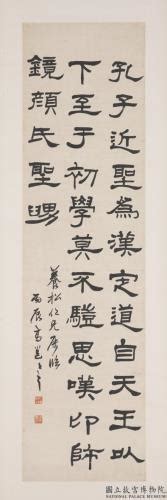 孔子近聖為漢定道自天王以
下至于初學莫不驥思嘆卬師
鏡顏氏聖舅
養松仁兄屬臨
丙辰高邕之
國立故宮博物院
NATIONAL PALACE MUSEUM